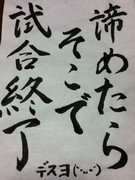 諦めたら
そこで
試合終了
デスヨ(´・_・`)